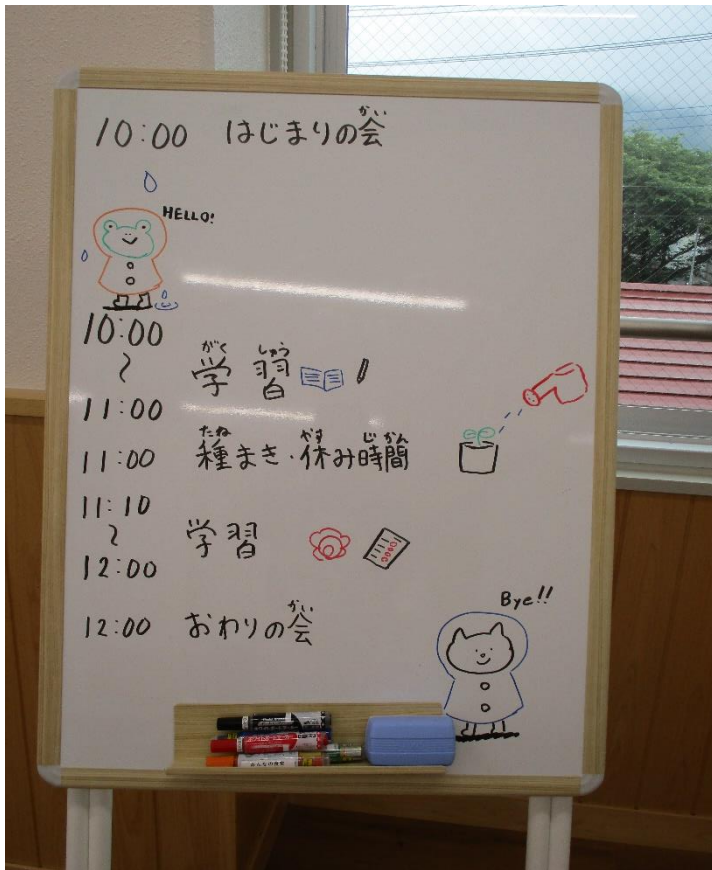 10:00 はじまりの会
かい
HELLO!
10:00
〜
11:00
学習
がくしゅう
11:00 種まき・休み時間
たね やす じかん
11:10
〜
12:00
学習
12:00 おわりの会
かい
Bye!!